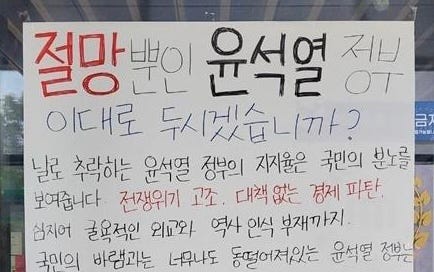 절망뿐인 윤석열 정부
이대로 두시겠습니까?
날로 추락하는 윤석열 정부의 지지율은 국민의 분노를
보여줍니다. 전쟁위기 고조. 대책 없는 경제 파탄.
심지어 굴욕적인 외교와 역사 인식 부재까지.
국민의 바램과는 너무나도 동떨어져있는 윤석열 정부는